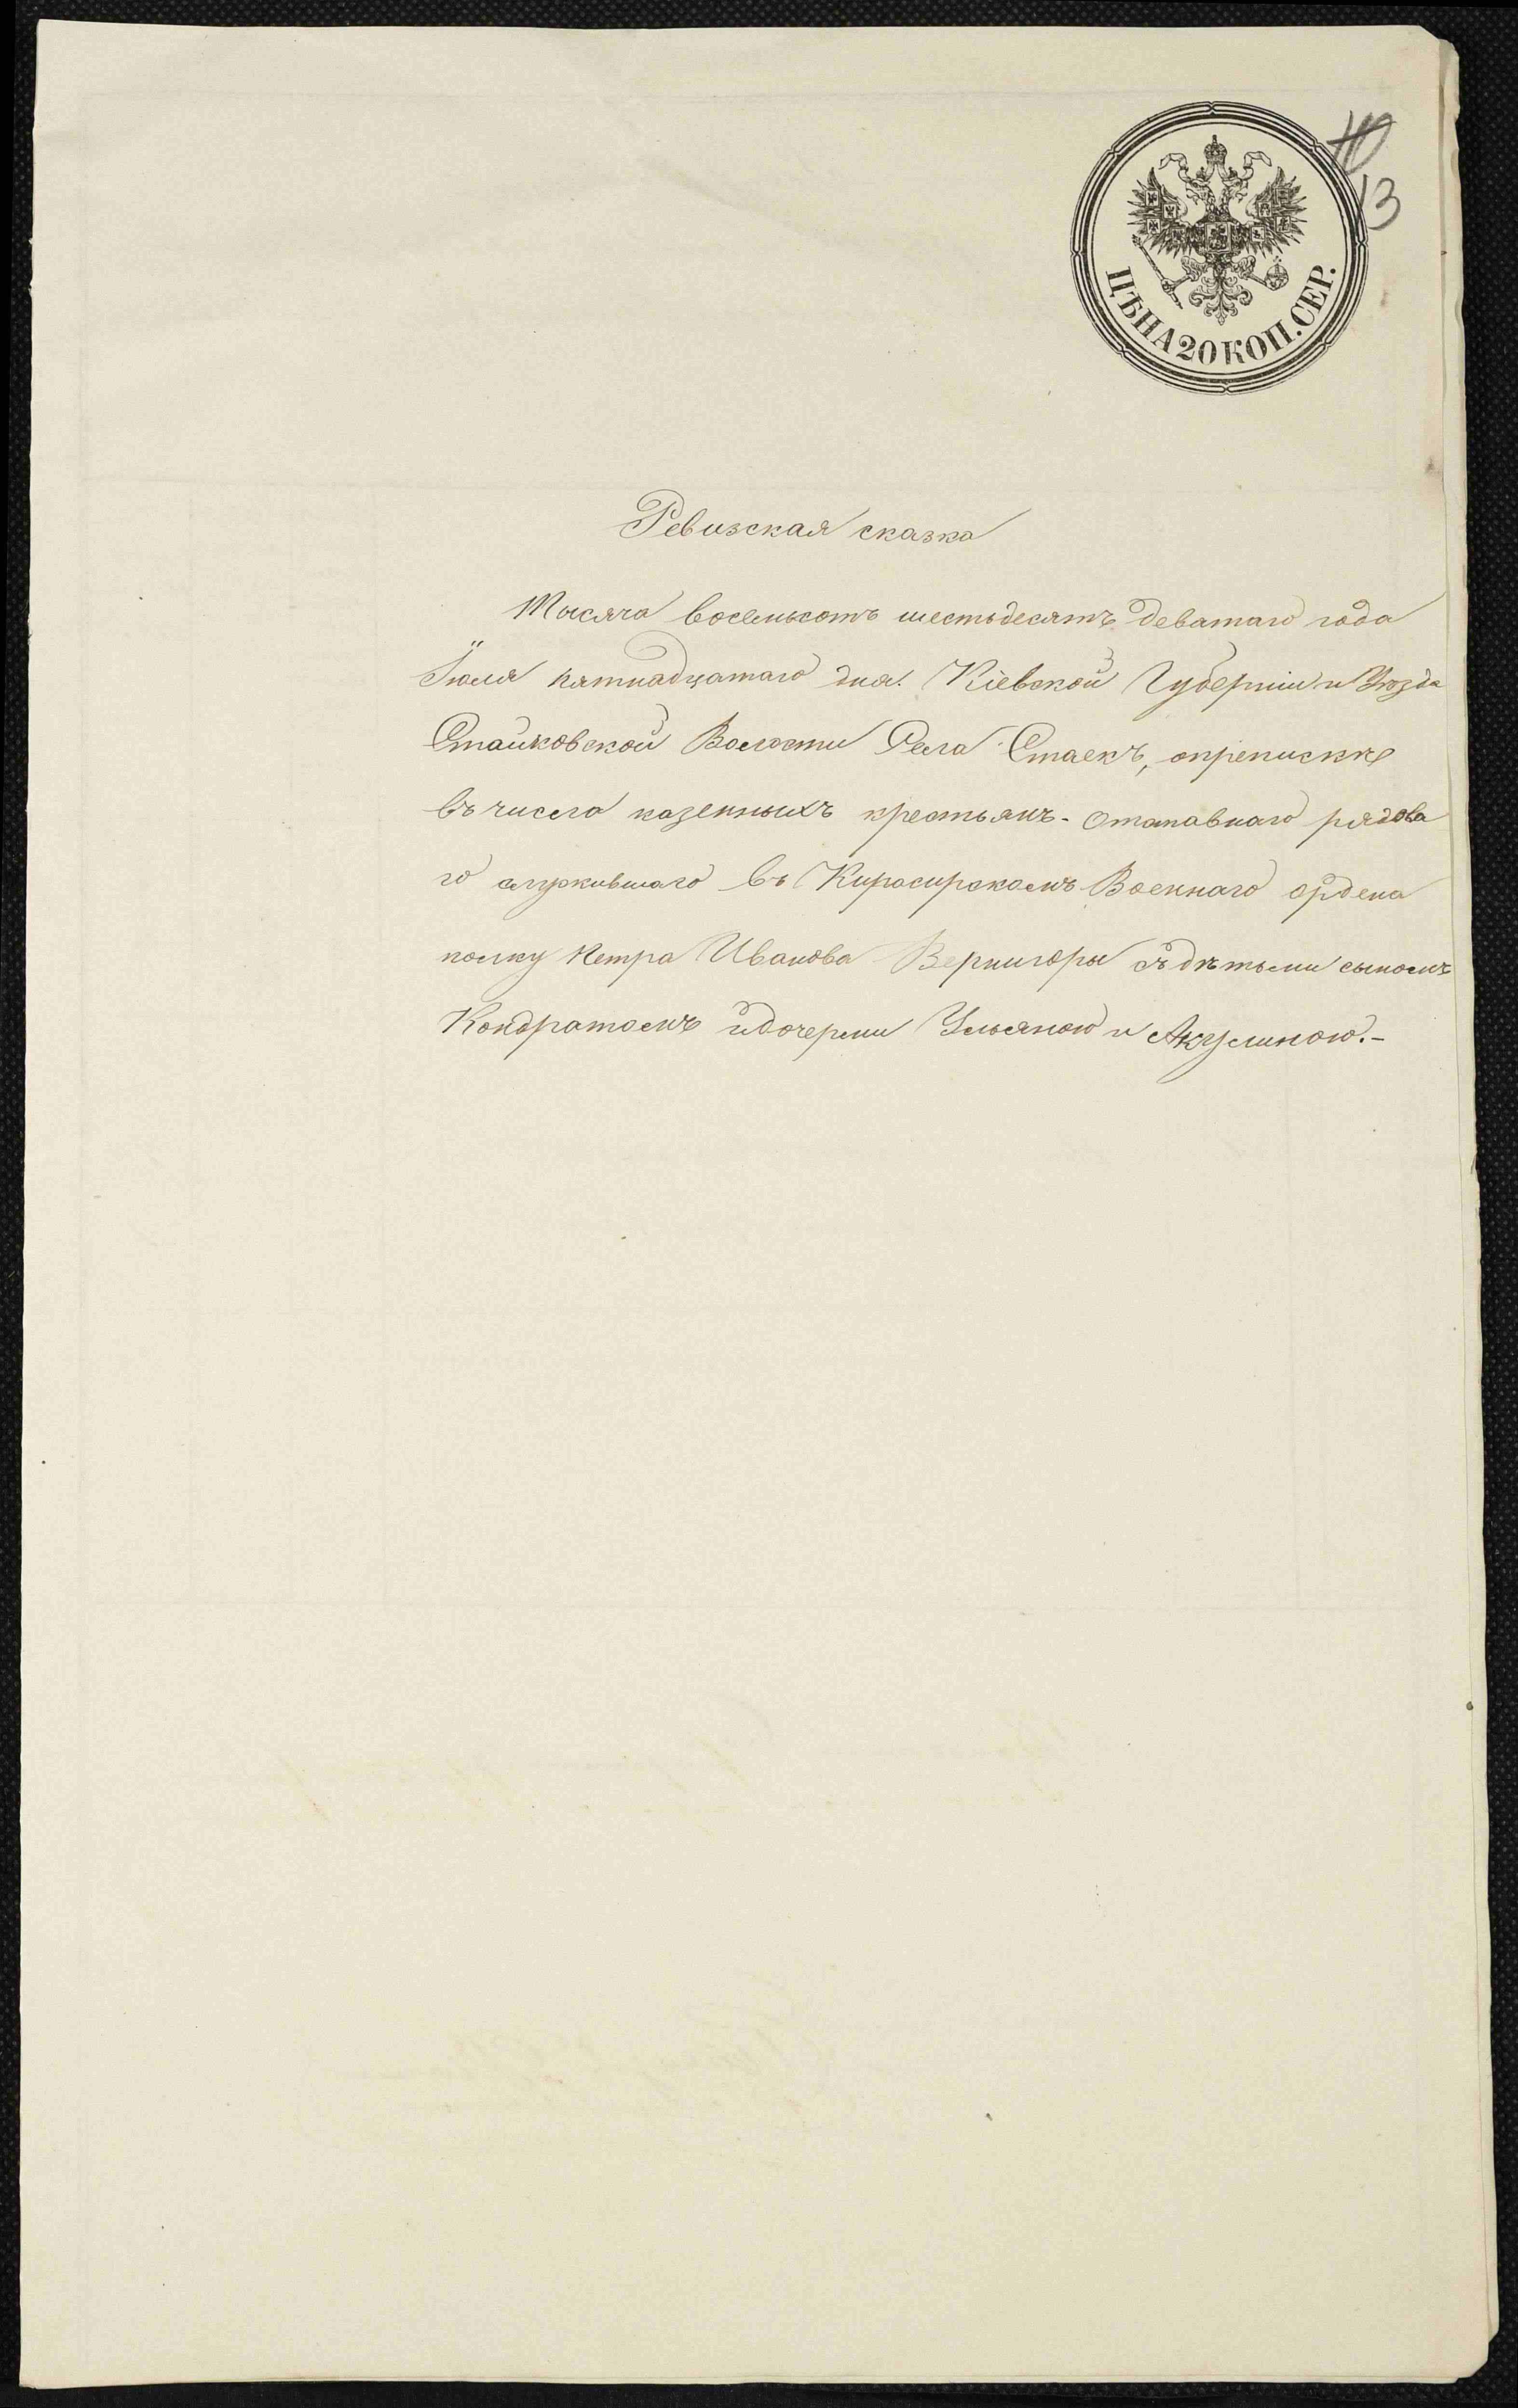 10
13
ЦѢНА 20 КОП. СЕР.
Ревизская сказка
Тысяча восемьсотъ шестьдесятъ деватаго года
Іюля пятнадцатаго дня. Кіевской Губерніи и Уѣзда
Стайковской Волости Села Стаекъ, о припискѣ
въ число казенныхъ крестьянъ - отставнаго рядова
го служившаго въ Кирасирскомъ Военнаго ордена
полку Петра Иванова Вернигоры съ дѣтьми сыномъ
Кондратомъ и дочерми Ульяною и Акулиною.-